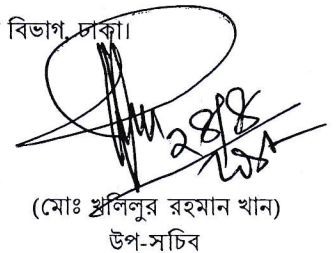 বিভাগ, ঢাকা।
২৪/৪
(মোঃ খলিলুর রহমান খান)
উপ-সচিব